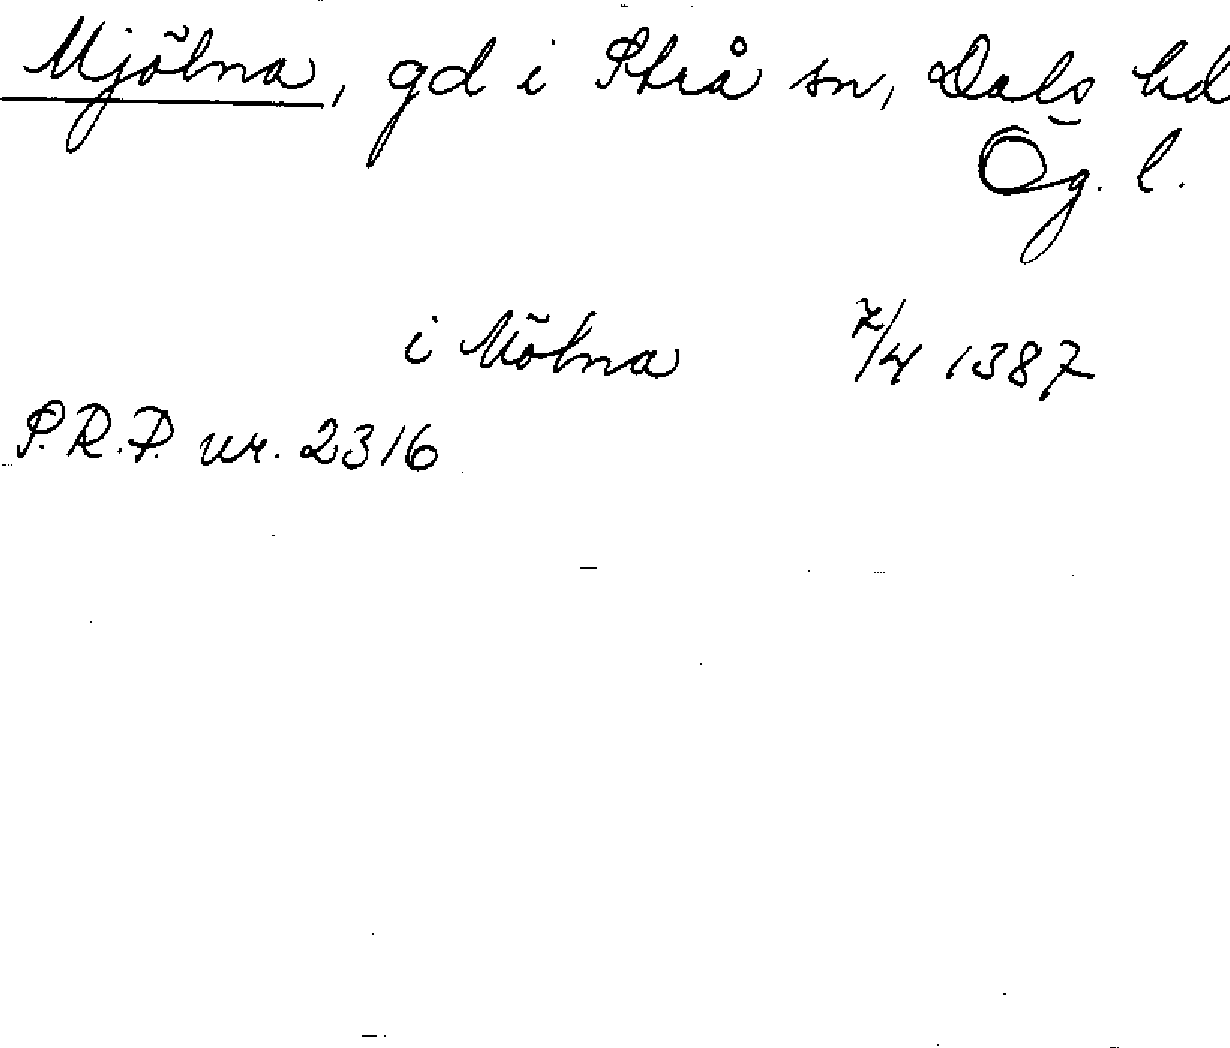 Mjölna, gd i Strå sn, Dals hd
Ög. l.
i Mölna 7/4 1387
S.R.P. nr. 2316